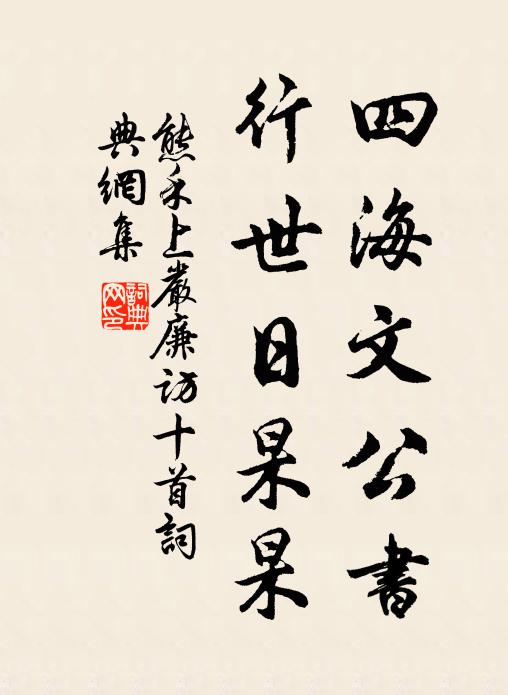 四海文公書
行世日杲杲
熊禾上嚴廉訪十首詞
典網集
詞典
网印